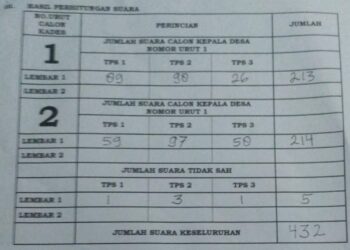 III. HASIL PERHITUNGAN SUARA
NO. URUT CALON KADES PERINCIAN JUMLAH
1 JUMLAH SUARA CALON KEPALA DESA
NOMOR URUT 1
TPS 1 TPS 2 TPS 3
LEMBAR 1 89 98 26 213
LEMBAR 2
2 JUMLAH SUARA CALON KEPALA DESA
NOMOR URUT 1
TPS 1 TPS 2 TPS 3
LEMBAR 1 59 97 58 214
LEMBAR 2
JUMLAH SUARA TIDAK SAH
TPS 1 TPS 2 TPS 3
LEMBAR 1 1 3 1 5
LEMBAR 2
JUMLAH SUARA KESELURUHAN 432